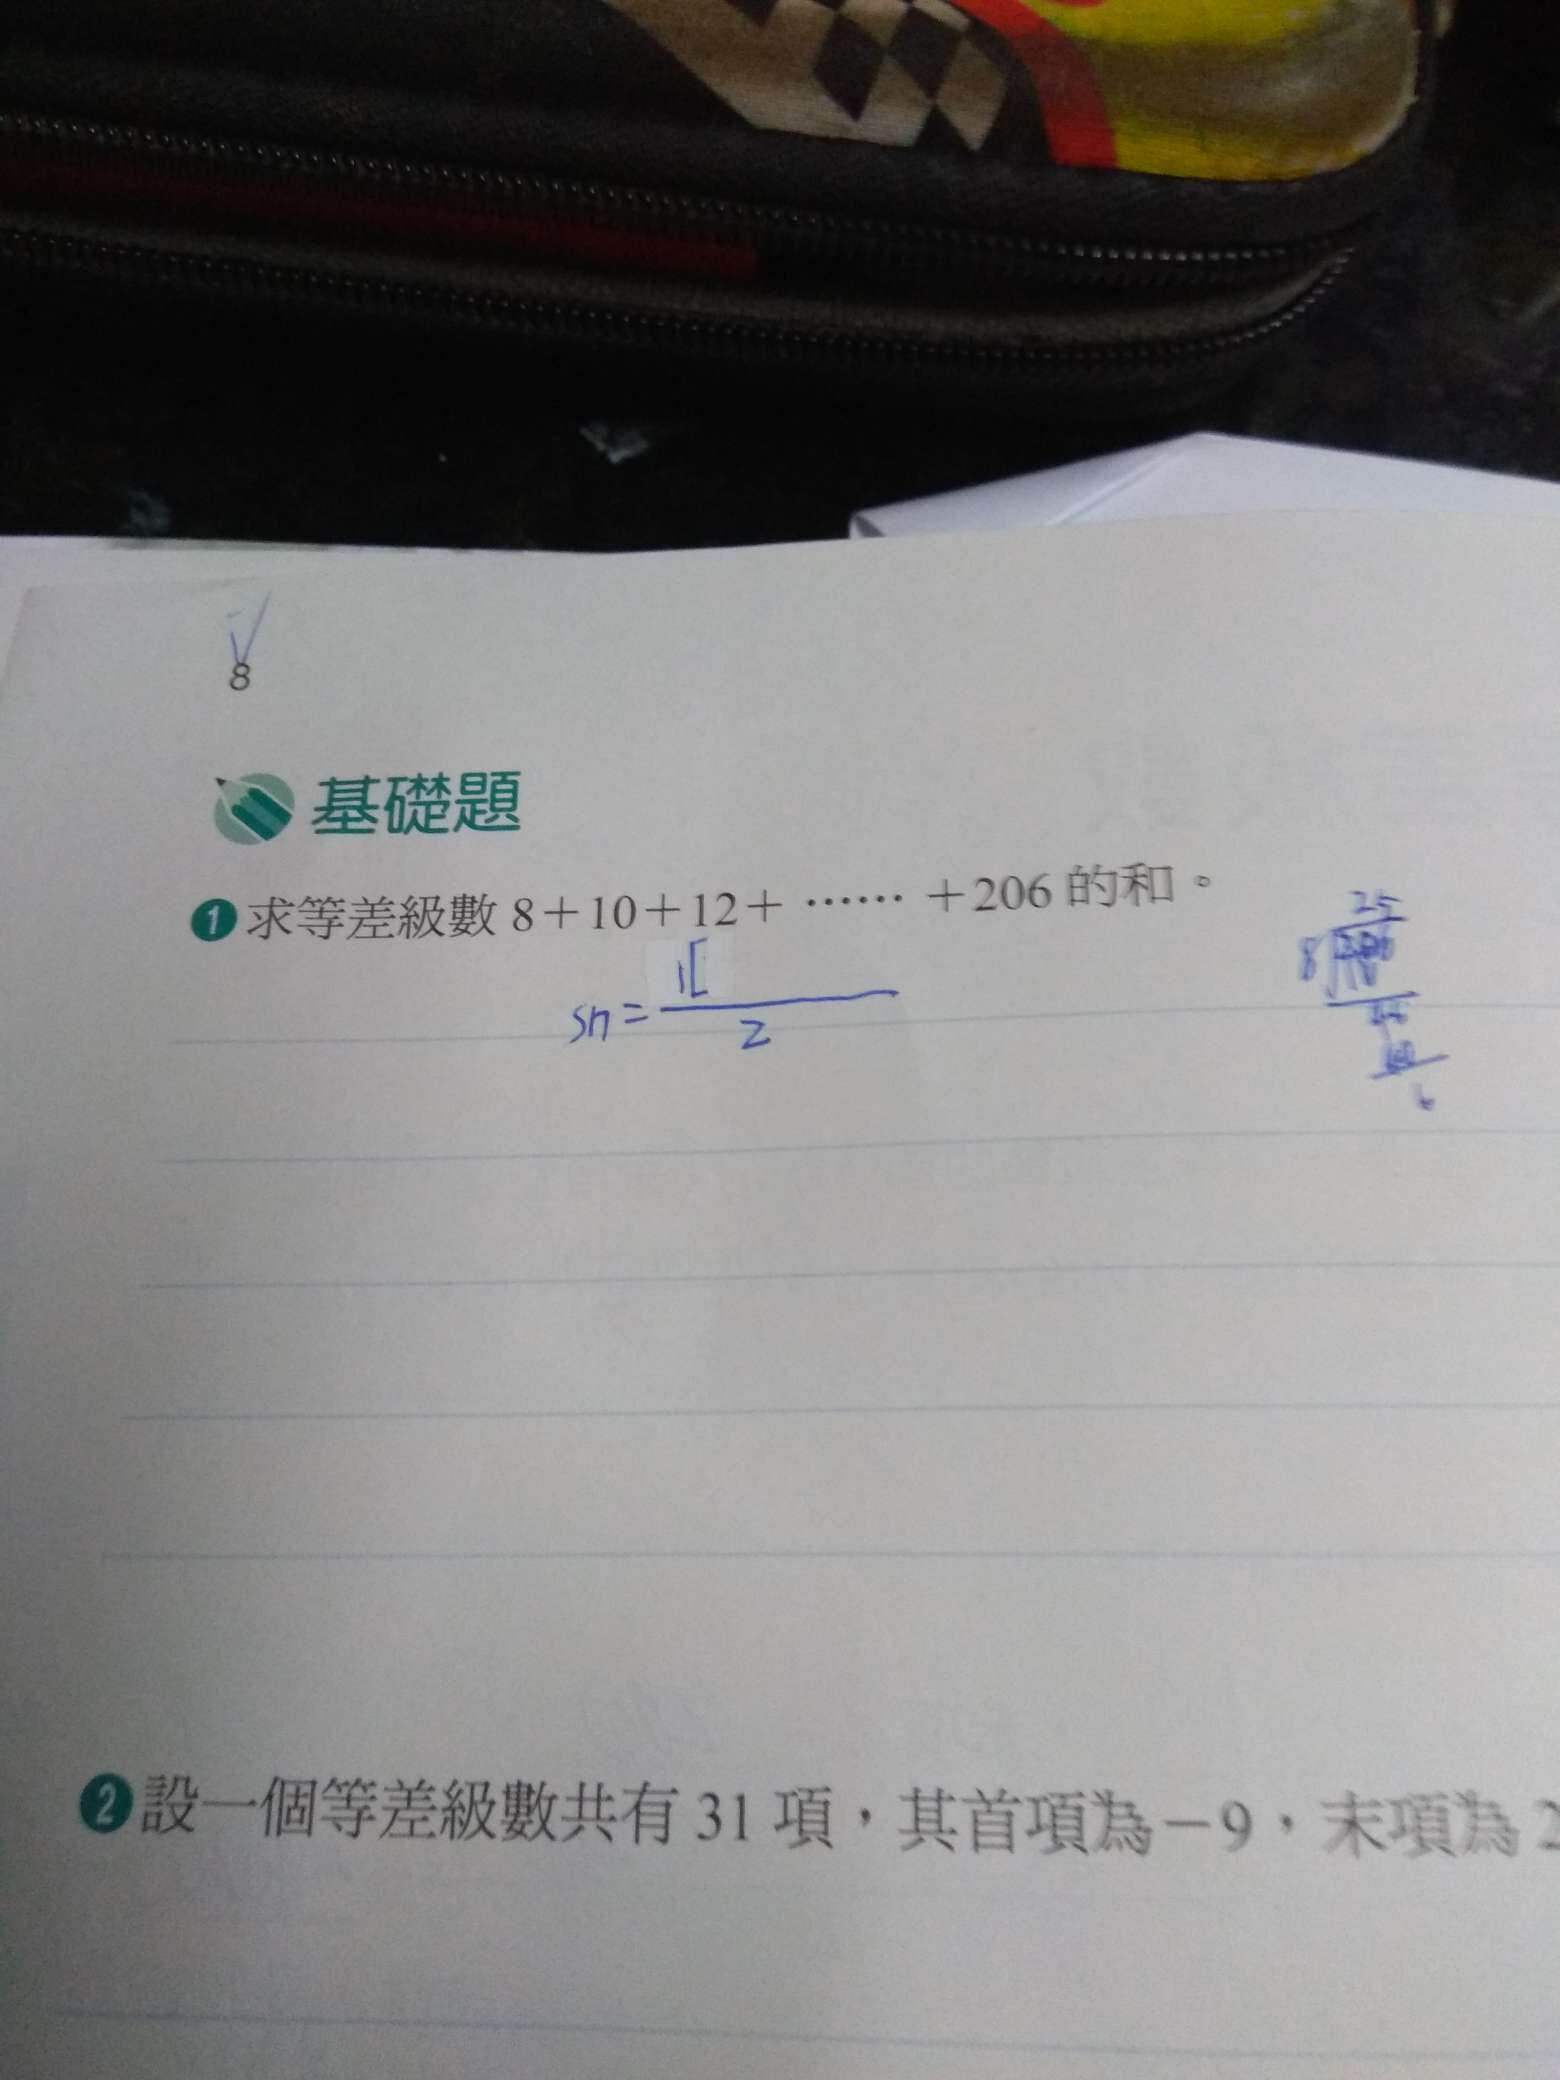 8
基礎題
1 求等差級數 8＋10＋12＋ …… ＋206 的和。
sn = 1[
2
25
8
6
2 設一個等差級數共有 31 項，其首項為－9，末項為 2